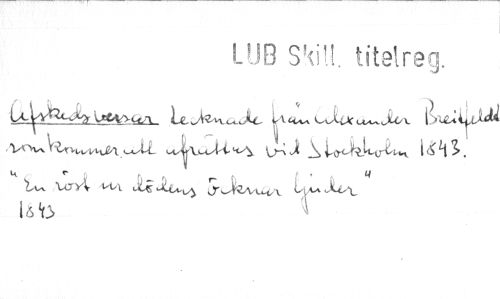 LUB Skill. titelreg.
Afskedsversar tecknade från Alexander Breitfeldt
som kommer att afrättas vid Stockholm 1843.
"En röst ur dödens öcknar ljuder"
1843